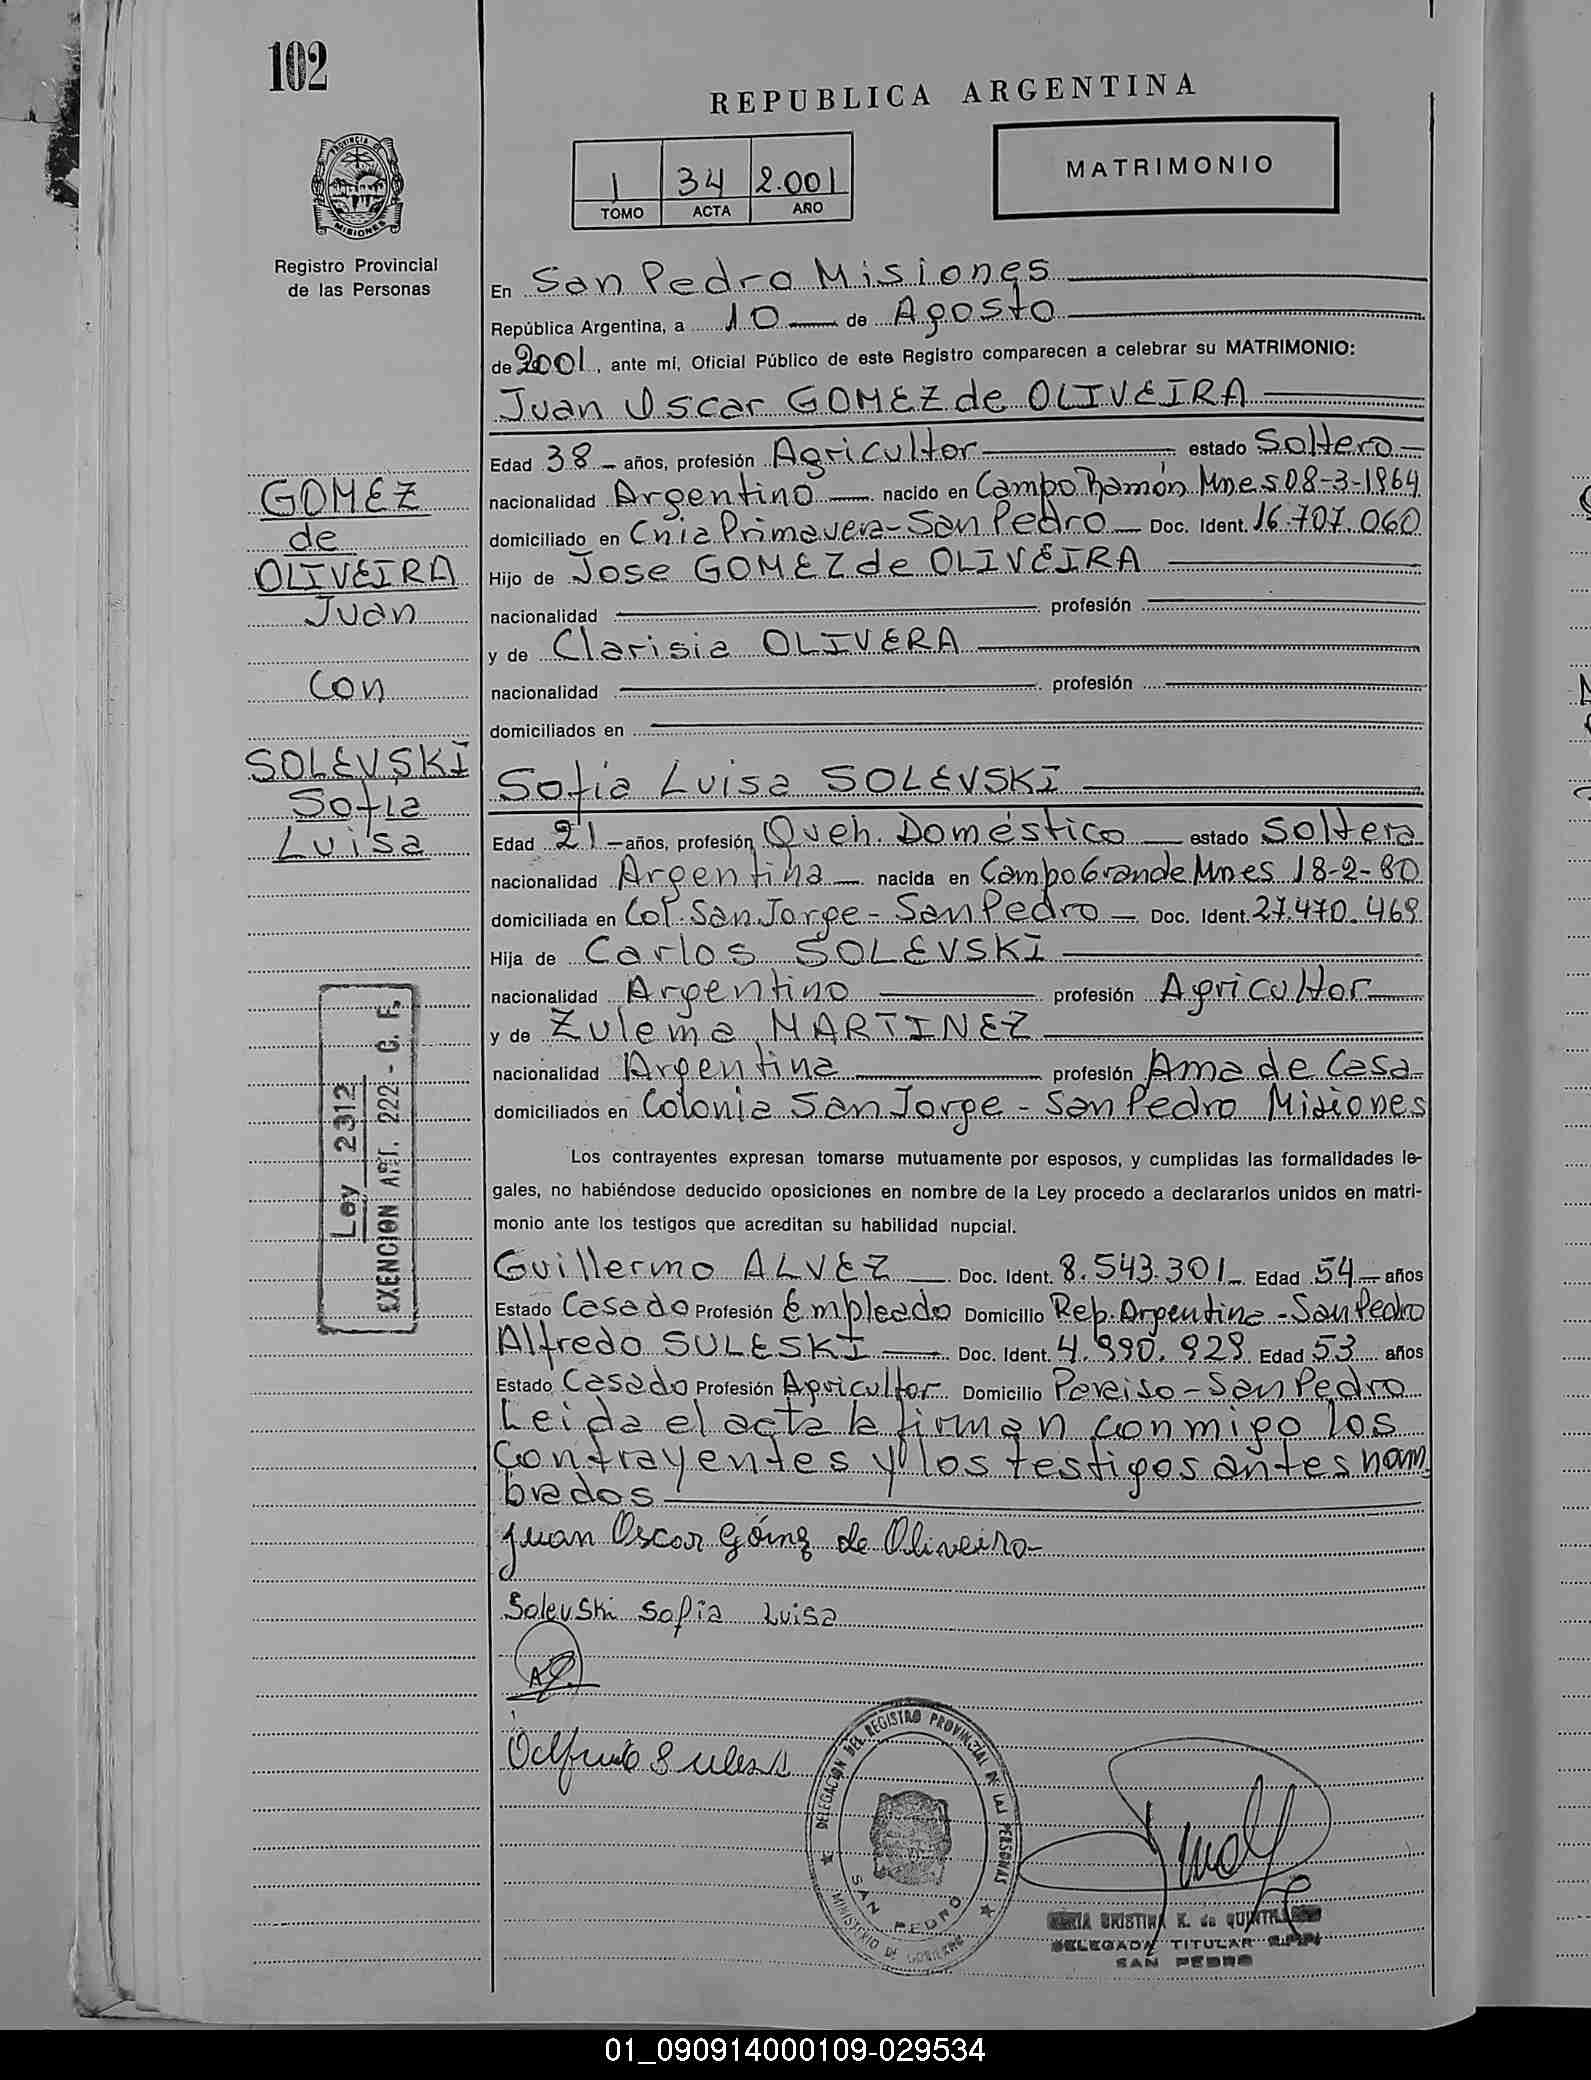 102
REPUBLICA ARGENTINA
PROVINCIA DE
MISIONES
Registro Provincial
de las Personas
1 34 2.001
TOMO ACTA AÑO
MATRIMONIO
En San Pedro Misiones
República Argentina, a 10 de Agosto
de 2001, ante mi, Oficial Público de este Registro comparecen a celebrar su MATRIMONIO:
Juan Oscar GOMEZ de OLIVEIRA
Edad 38 años, profesión Agricultor estado Soltero
nacionalidad Argentino nacido en Campo Ramón Mnes 08-3-1964
domiciliado en Cnia Primavera - San Pedro Doc. Ident. 16.707.060
Hijo de Jose GOMEZ de OLIVEIRA
nacionalidad profesión
y de Clarisia OLIVERA
nacionalidad profesión
domiciliados en
GOMEZ
de
OLIVEIRA
Juan
Con
SOLEVSKI
Sofia
Luisa
Sofia Luisa SOLEVSKI
Edad 21 años, profesión Queh. Doméstico estado Soltera
nacionalidad Argentina nacida en Campo Grande Mnes 18-2-80
domiciliada en Col. San Jorge - San Pedro Doc. Ident. 27.470.469
Hija de Carlos SOLEVSKI
nacionalidad Argentino profesión Agricultor
y de Zulema MARTINEZ
nacionalidad Argentina profesión Ama de Casa
domiciliados en Colonia San Jorge - San Pedro Misiones
Ley 2312
EXENCION ART. 222 - C. F.
Los contrayentes expresan tomarse mutuamente por esposos, y cumplidas las formalidades le-
gales, no habiéndose deducido oposiciones en nombre de la Ley procedo a declararlos unidos en matri-
monio ante los testigos que acreditan su habilidad nupcial.
Guillermo ALVEZ Doc. Ident. 8.543.301 Edad 54 años
Estado Casado Profesión Empleado Domicilio Rep. Argentina - San Pedro
Alfredo SULESKI Doc. Ident. 4.990.929 Edad 53 años
Estado Casado Profesión Agricultor Domicilio Paraiso - San Pedro
Leida el acta la firman conmigo los
contrayentes y los testigos antes nom
brados
Juan Oscar Gómz de Oliveira
Solevski Sofia Luisa
DELEGACION DEL REGISTRO PROVINCIAL DE LAS PERSONAS
SAN PEDRO
MINISTERIO DE GOBIERNO
MARIA CRISTINA K. de
DELEGADA TITULAR
SAN PEDRO
01_090914000109-029534